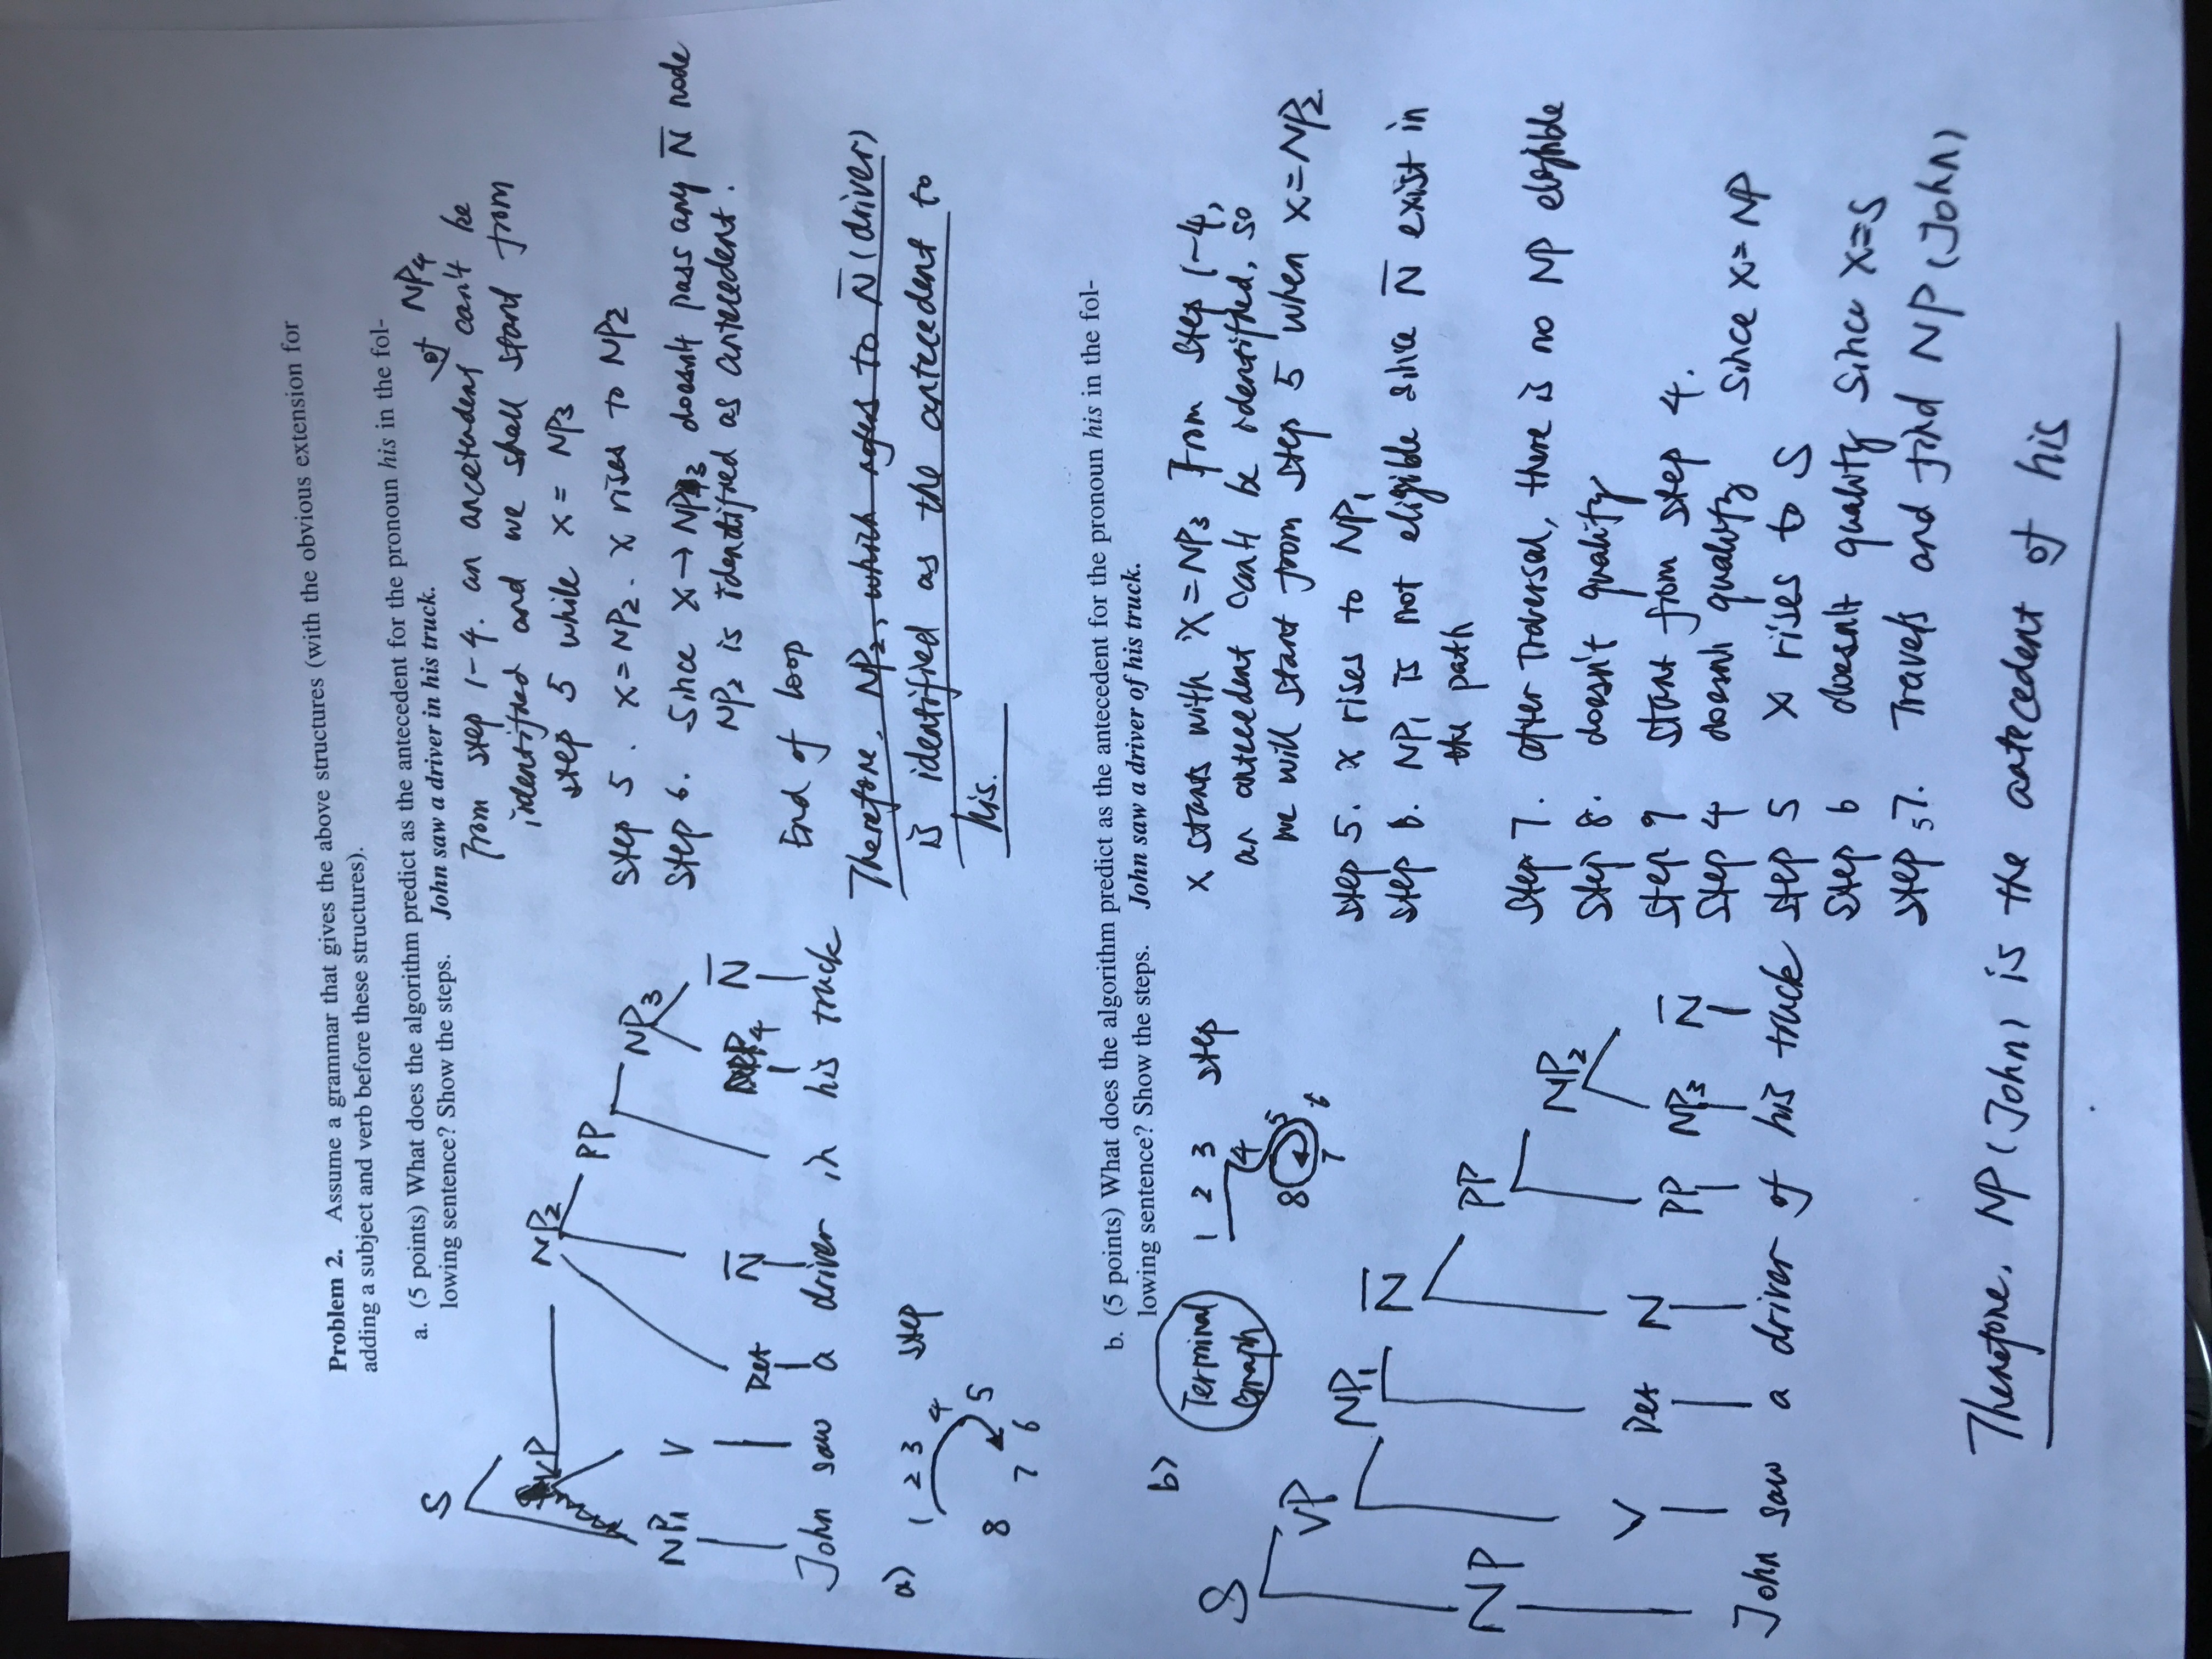 Problem 2. Assume a grammar that gives the above structures (with the obvious extension for
adding a subject and verb before these structures).
a. (5 points) What does the algorithm predict as the antecedent for the pronoun his in the fol-
lowing sentence? Show the steps. John saw a driver in his truck.
S
VP
NP2
PP
NP3
NP1 V
Det N̄ NP4 N̄
John saw a driver in his truck
a) 1 2 3 4 5 6 7 8 step
of NP4
From step 1-4. an ancetendent can't be
identified and we shall start from
step 5 while x = NP3
Step 5. x = NP2. x rises to NP2
Step 6. Since x → NP3 doesn't pass any N̄ node
NP2 is identified as antecedent.
End of loop
Therefore, NP2, which refers to N̄ (driver)
is identified as the antecedent to
his.
b. (5 points) What does the algorithm predict as the antecedent for the pronoun his in the fol-
lowing sentence? Show the steps. John saw a driver of his truck.
b)
Terminal
Graph
1 2 3 step
4
8 5
7 6
S
VP
NP1 N̄
PP
NP
NP2
V Det N PP NP3 N̄
John saw a driver of his truck
x starts with x = NP3 From step 1~4,
an antecedent can't be identified, so
we will start from step 5 when x = NP2.
Step 5. x rises to NP1
Step 6. NP1 is not eligible since N̄ exist in
the path
Step 7. after traversal, there is no NP eligible
Step 8. doesn't quality
Step 9 start from step 4.
Step 4 doesn't quality Since x = NP
Step 5 x rises to S
Step 6 doesn't quality Since x = S
Step 7. Travels and find NP (John)
Therefore, NP (John) is the antecedent of his